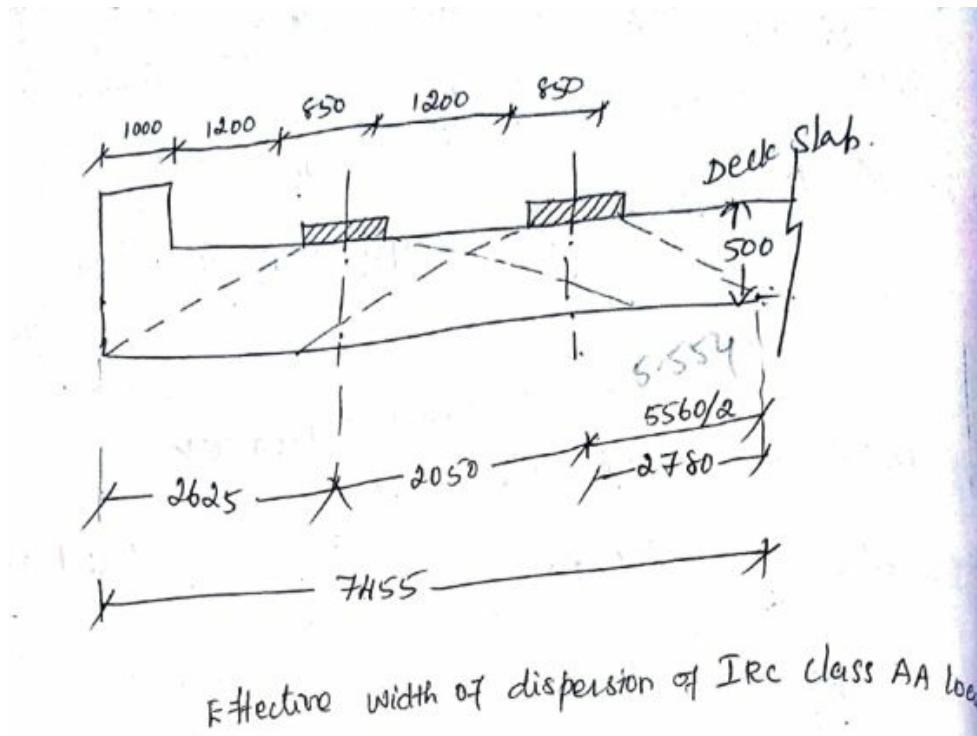 1000 1200 850 1200 850
Deck Slab.
500
5.554
5560/2
2625 2050 2780
7455
Effective width of dispersion of IRC class AA